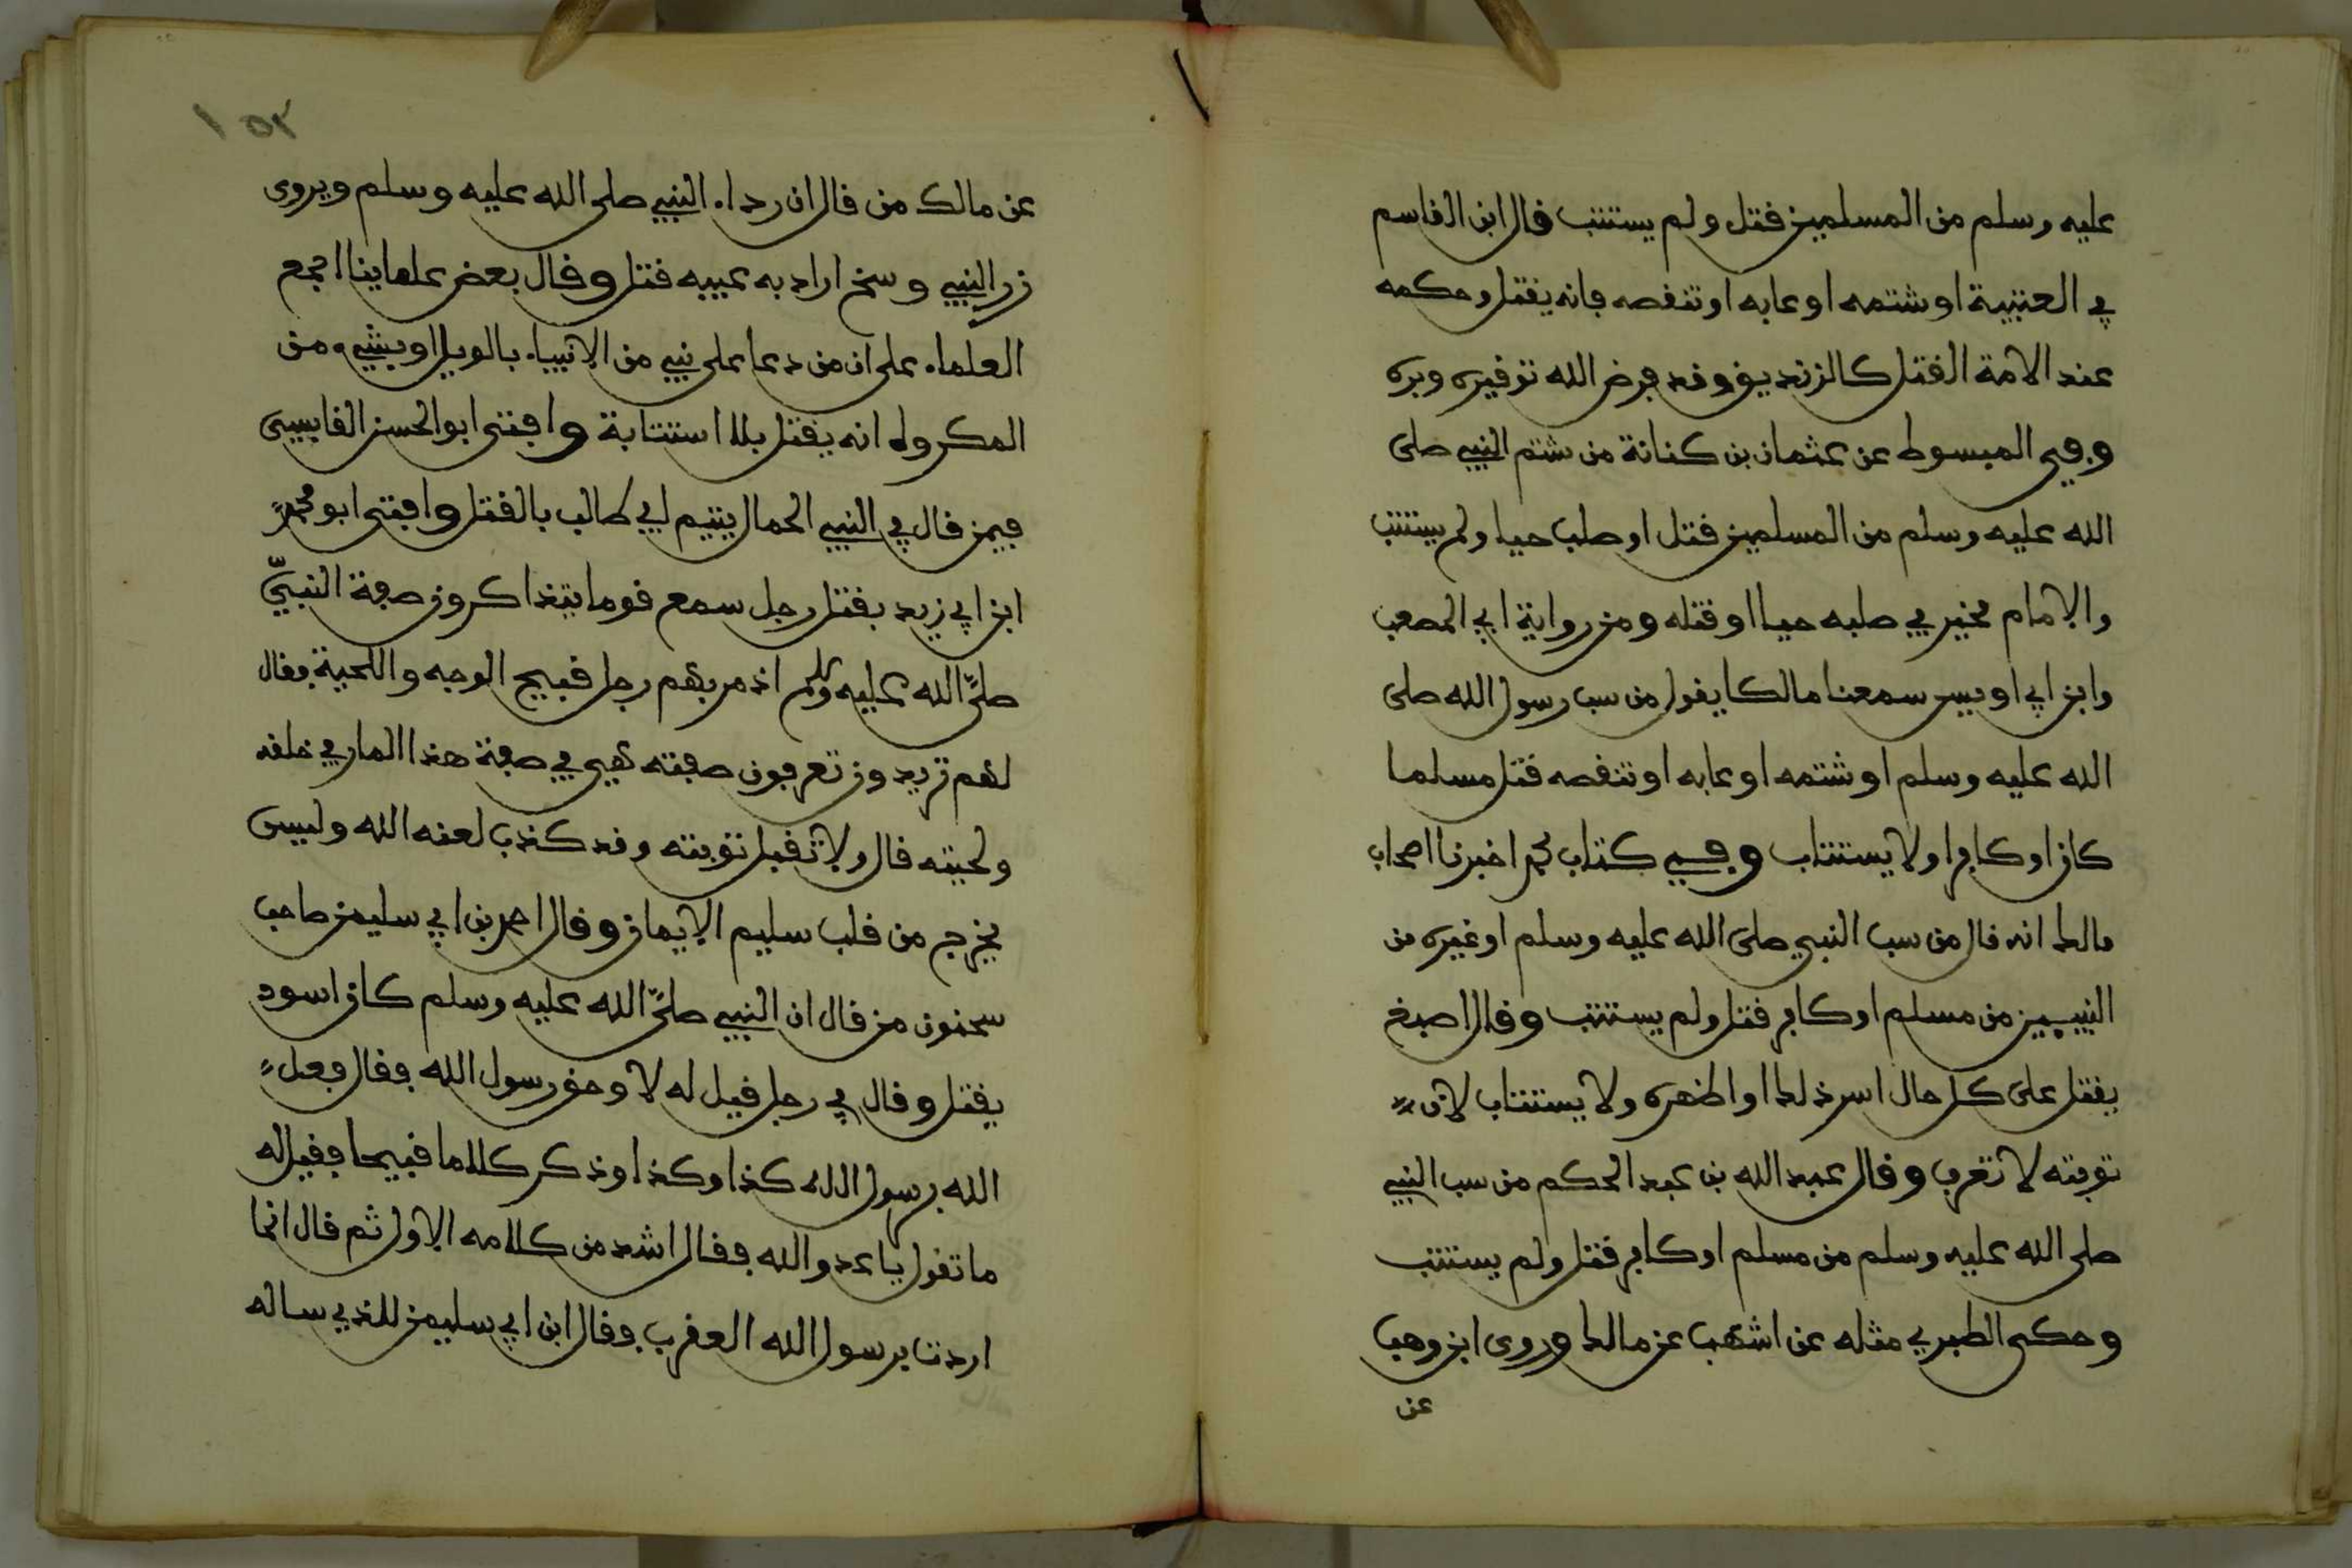 عليه وسلم من المسلمين قتل ولم يستتب قال ابن القاسم
في العتبية او شتمه او عابه او تنقصه فانه يقتل وحكمه
عند الامة القتل كالزنديق وقد فرض الله توقيره وبره
وفي المبسوط عن عثمان بن كنانة من شتم النبي صلى
الله عليه وسلم من المسلمين قتل او صلب حيا ولم يستتب
والامام مخير في صلبه حيا او قتله ومن رواية ابي المصعب
وابن ابي اويس سمعنا مالكا يقول من سب رسول الله صلى
الله عليه وسلم او شتمه او عابه او تنقصه قتل مسلما
كان او كافرا ولا يستتاب وفي كتاب محمد اخبرنا اصحاب
مالك انه قال من سب النبي صلى الله عليه وسلم او غيره من
النبيين من مسلم او كافر قتل ولم يستتب وقال اصبغ
يقتل على كل حال اسر ذلك او اظهره ولا يستتاب لان
توبته لا تعرف وقال عبد الله بن عبد الحكم من سب النبي
صلى الله عليه وسلم من مسلم او كافر قتل ولم يستتب
وحكى الطبري مثله عن اشهب عن مالك وروى ابن وهب
عن
١٥٢
عن مالك من قال ان رداء النبي صلى الله عليه وسلم ويروى
زر النبي وسخ اراد به عيبه قتل وقال بعض علماينا اجمع
العلماء على ان من دعا على نبي من الانبياء بالويل او بشيء من
المكروه انه يقتل بلا استتابة وافتى ابو الحسن القابسي
فيمن قال في النبي الحمال يتيم ابي طالب بالقتل وافتى ابو محمد
ابن ابي زيد بقتل رجل سمع قوما يتذاكرون صفة النبي
صلى الله عليه وسلم اذ مر بهم رجل قبيح الوجه واللحية فقال
لهم تريدون تعرفون صفته هي في صفة هذا المار في خلقه
ولحيته قال ولا تقبل توبته وقد كذب لعنه الله وليس
يخرج من قلب سليم الايمان وقال احمد بن ابي سليمن صاحب
سحنون من قال ان النبي صلى الله عليه وسلم كان اسود
يقتل وقال في رجل قيل له لا وحق رسول الله فقال فعل
الله برسول الله كذا وكذا وذكر كلاما قبيحا فقيل له
ما تقول يا عدو الله فقال اشد من كلامه الاول ثم قال انما
اردت برسول الله العقرب فقال ابن ابي سليمن للذي ساله